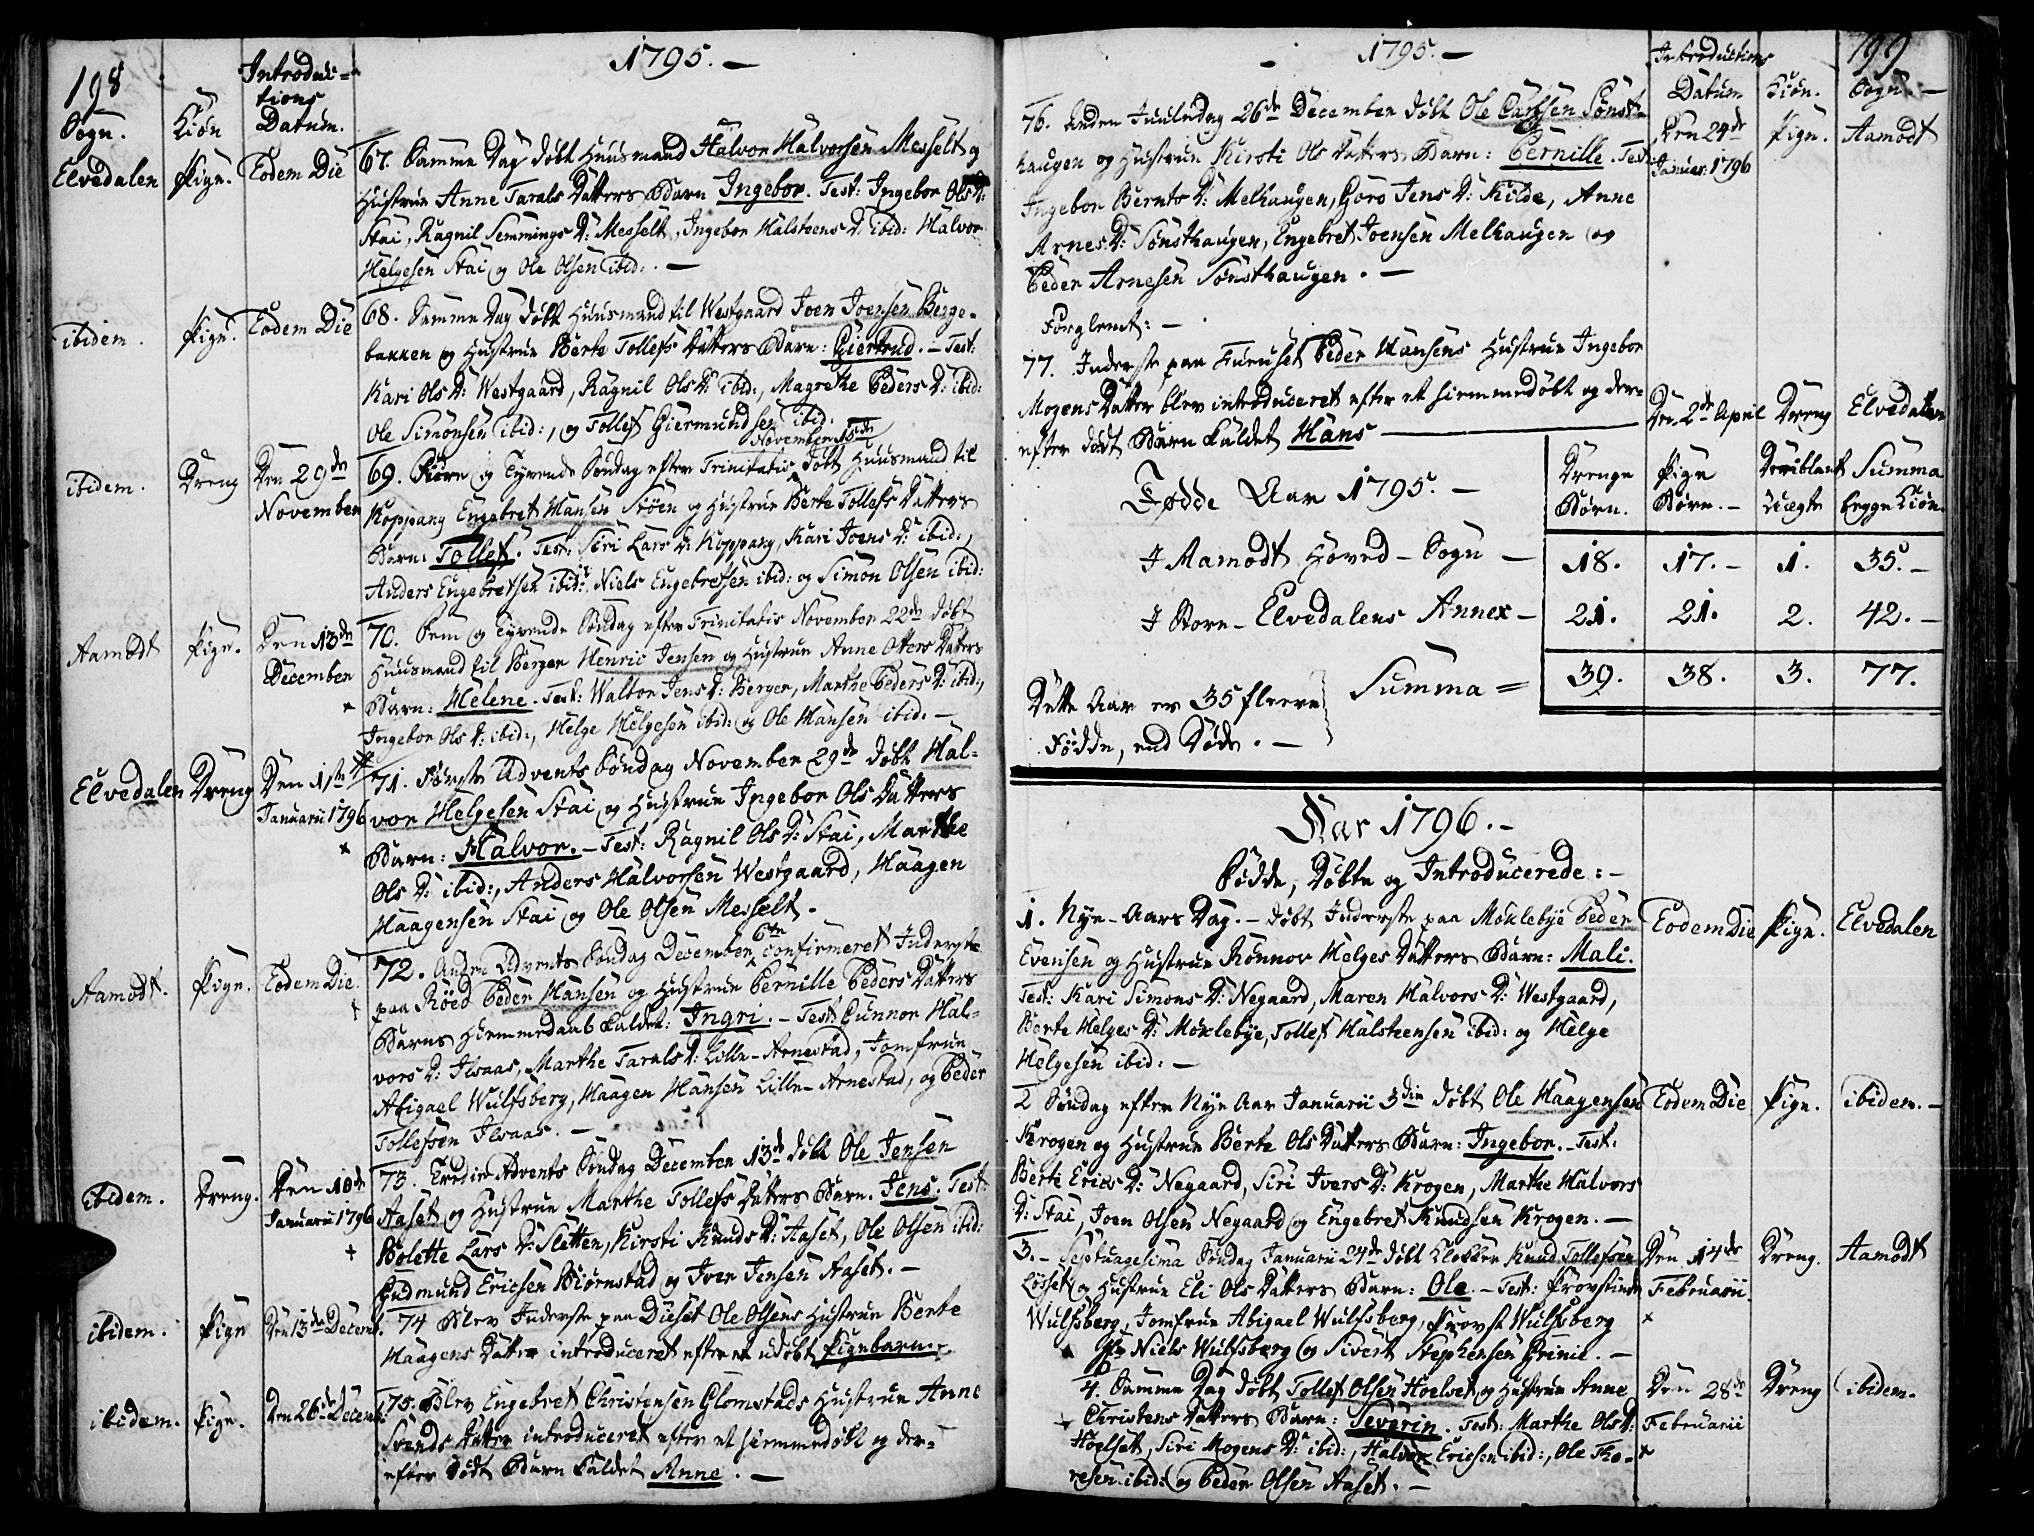 198
Introduc=
tions
Sogn. Kiön Datum.
1795. —
Elvedalen Pige. Eodem Die
67. Samme Dag döbt Huusmand Halvor Halvorsen Messelt og
Hustrue Anne Tarals Datters Barn Ingebor. Test: Ingebor Ols D:
Stai, Ragnil Semmings D: Messelt, Ingebor Halsteens D: ibid: Halvor
Helgesen Stai og Ole Olsen ibid: . —
ibidem. Pige. Eodem Die
68. Samme Dag döbt Huusmand til Westgaard Joen Joensen Berge-
bakken og Hustrue Berte Tollefs Datters Barn: Giertrud. — Test:
Kari Ols D: Westgaard, Ragnil Ols D: ibid:, Magrethe Peders D: ibid:
Ole Simonsen ibid:, og Tollef Giermundsen ibid:
November 15de
ibidem. Dreng Den 29de November
69. Fiire og Tyvende Söndag efter Trinitatis döbt Huusmand til
Koppang Engebret Hansen Stöen og Hustrue Berte Tollefs Datters
Barn: Tollef. Test: Siri Lars D: Koppang, Kari Joens D: ibid:,
Anders Engebretsen ibid:, Niels Engebretsen ibid: og Simon Olsen ibid:
Aamodt Pige. Den 13de December
70. Fem og Tyvende Söndag efter Trinitatis November 22de döbt
Huusmand til Berger Henric Jensen og Hustrue Anne Otters Datters
Barn: Helene. Test: Walbor Jens D: Berger, Marthe Peders D: ibid:,
Ingebor Ols D: ibid:, Helge Helgesen ibid: og Ole Hansen ibid. —
Elvedalen Dreng Den 1ste Januarii 1796
71. Förste Advents Söndag November 29de döbt Hal-
vor Helgesen Stai og Hustrue Ingebor Ols Datters
Barn: Halvor. — Test: Ragnil Ols D: Stai, Marthe
Ols D: ibid:, Anders Halvorsen Westgaard, Haagen
Haagensen Stai og Ole Olsen Messelt.
Aamodt. Pige. Eodem Die.
72. Anden Advents Söndag December 6te confirmeret Inderste
paa Röed Peder Hansen og Hustrue Pernille Peders Datters
Barns Hiemmedaab kaldet: Ingri. — Test: Gunnor Hal-
vors D: Ilvaas, Marthe Tarals D: Lille-Arnestad, Jomfrue
Abigael Wulfsberg, Haagen Hansen Lille-Arnestad, og Peder
Tollefsen Ilvaas. —
ibidem. Dreng. Den 10de Januarii 1796
73. Tredie Advents Söndag December 13de döbt Ole Jensen
Aaset og Hustrue Marthe Tollefs Datters Barn. Jens. Test:
Bolette Lars D: Sletten, Kirsti Knuds D: Aaset, Ole Olsen ibid:
Gudmund Ericsen Biörnstad og Iver Jensen Aaset. —
ibidem. Pige Den 13de Decemb.
74 Blev Inderste paa Dieset Ole Olsens Hustrue Berte
Haagens Datter introduceret efter et udöbt Pigebarn. —
ibidem. Pige. Den 26de Decemb:
75. Blev Engebret Christensen Glomstads Hustrue Anne
Svends Datter introduceret efter et hiemmedöbt og der-
efter Dödt Barn kaldet Anne. —
1795. —
Introductions
Datum Kiön. Sogn. —
199
76. Anden Juuledag 26de December döbt Ole Sönst-
haugen og Hustrue Kirsti Ols Datters Barn: Pernille. Test:
Ingebor Bernts D: Melhaugen, Goro Jens D: Kilde, Anne
Arnes D: Sönsthaugen, Engebret Joensen Melhaugen og
Peder Arnesen Sönsthaugen. —
Den 24de Januar: 1796 Pige. Aamodt
Forglemt: —
77. Inderste paa Furuset Peder Hansens Hustrue Ingebor
Mogens Datter blev introduceret efter et hiemmedöbt og der-
efter dödt Barn kaldet Hans
Den 2de April Dreng Elvedalen
Födde Aar 1795. —
Drenge Börn. Pige Börn. — Deriblant Uægte Summa begge Kiön.
I Aamodt Hoved-Sogn — 18. 17. — 1. 35. —
I Store-Elvedalens Annex — 21. 21. 2. 42. —
Summa = 39. 38. 3. 77.
Dette Aar er 35 fleere
Födde, end Döde. —
Aar 1796. —
Födde, Döbte og Introducerede: —
1. Nye-Aars Dag. — döbt Inderste paa Moklebye Peder
Evensen og Hustrue Rönnov Helges Datters Barn: Mali.
Test: Kari Simons D: Negaard, Maren Halvors D: Westgaard,
Berte Helges D: Moklebye, Tollef Halsteensen ibid: og Helge
Helgesen ibid: —
Eodem Die Pige. Elvedalen
2 Söndag efter Nye Aar Januarii 3die döbt Ole Haagensen
Krogen og Hustrue Berte Ols Datters Barn: Ingebor. — Test:
Berte Erics D: Negaard, Siri Ivers D: Krogen, Marthe Halvors
D: Stai, Joen Olsen Negaard og Engebret Knudsen Krogen. —
Eodem Die Pige. ibidem. —
3. — Septuagesima Söndag Januarii 24de döbt Klokker Knud Tollefsen
Löset og Hustrue Eli Ols Datters Barn: Ole. — Test: Provstinde
Wulfsberg, Jomfrue Abigael Wulfsberg, Provst Wulfsberg
Niels Wulfsberg og Sivert Stephensen Grinie. —
Den 14de Februarii Dreng. Aamodt
4. Samme Dag döbt Tollef Olsen Hoelset og Hustrue Anne
Christens Datters Barn: Severin. Test: Marthe Ols D:
Hoelset, Siri Mogens D: ibid:, Halvor Ericsen ibid:, Ole Tho-
resen ibid: og Peder Olsen Aaset. —
Den 28de Februarii Dreng ibidem.